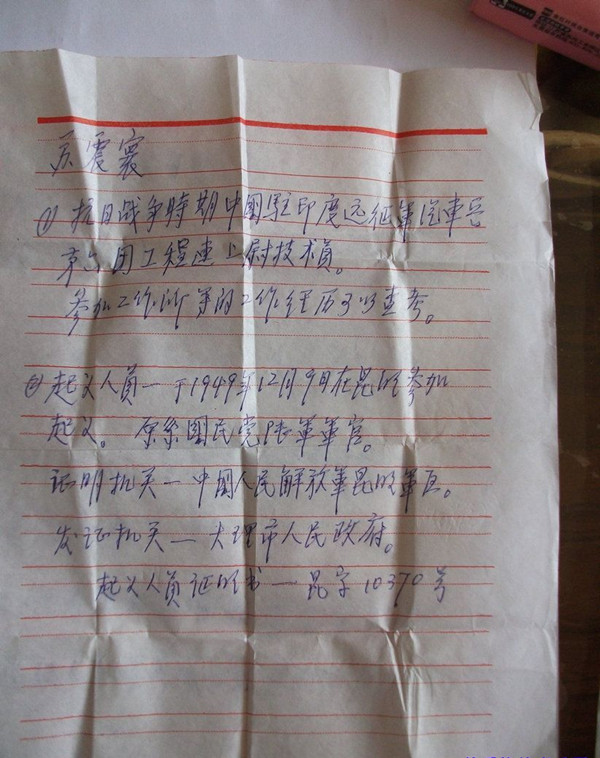 震寰
① 抗日战争時期中國駐印度远征軍汽車兵
第六团工程連上尉技术員。
参加工作所写的工作经历可以查考。
② 起义人員—于1949年12月9日在昆明参加
起义。原系國民党陆軍軍官。
证明机关—中國人民解放軍昆明軍区。
发证机关—大理市人民政府。
起义人員证明书—昆字10370号